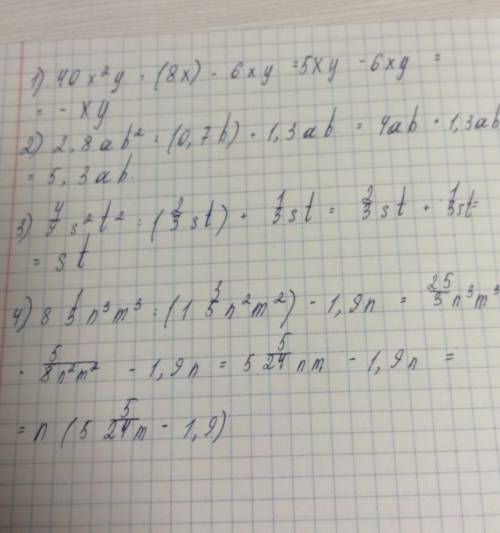 1) 40x²y : (8x) - 6xy = 5xy - 6xy =
= - xy
2) 2,8ab² : (0,7b) + 1,3ab = 4ab + 1,3ab
= 5,3ab.
3) 4/9 s²t² : (2/3 st) + 1/3 st = 2/3 st + 1/3 st =
= st
4) 8 1/3 n³m³ : (1 3/5 n²m²) - 1,9n = 25/3 n³m³
· 5/8n²m² - 1,9n = 5 5/24 nm - 1,9n =
= n (5 5/24 m - 1,9)